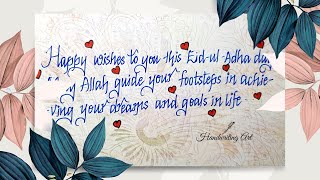 Happy wishes to you this Eid-ul-Adha day
y Allah guide your footsteps in achie-
ving your dreams and goals in life
Handwriting Art